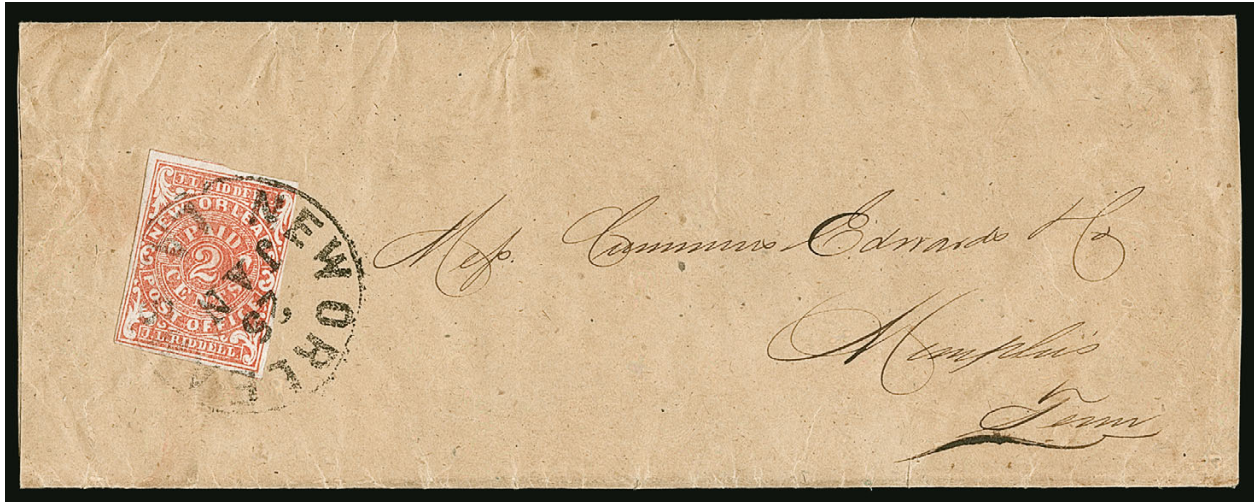 J.L. RIDDELL
NEW ORLEANS
PAID
2
CENTS
POST OFFICE
J.L. RIDDELL.
NEW ORLEA
JAN
Mess. Cummins Edwards & Co
Memphis
Tenn